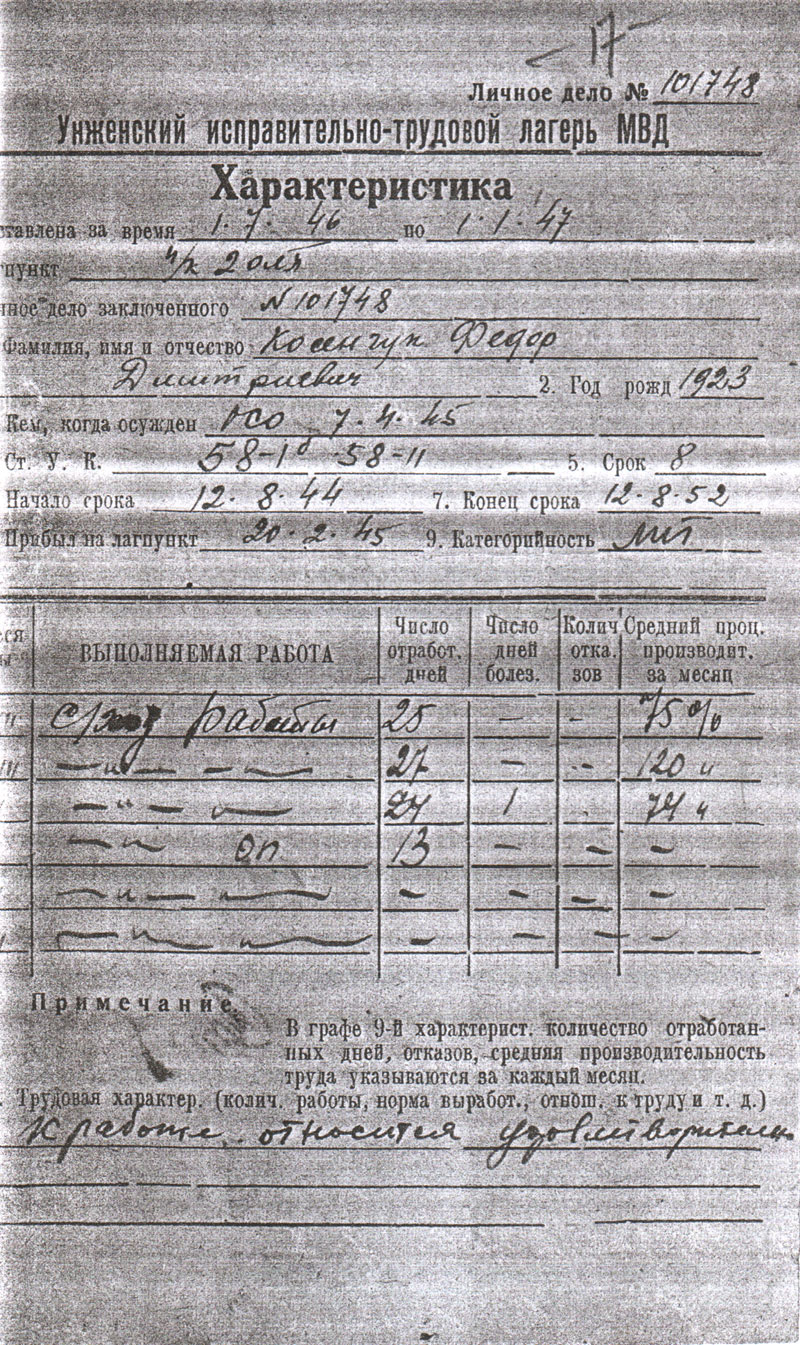 17
Личное дело № 101748
Унженский исправительно-трудовой лагерь МВД
Характеристика
ставлена за время 1.7.46 по 1.1.47
пункт 2 олп
ное дело заключенного N 101748
Фамилия, имя и отчество Федор
Дмитриевич 2. Год рожд 1923
Кем, когда осужден ОСО 7.4.45
Ст. У. К. 58-1б 58-11 5. Срок 8
Начало срока 12.8.44 7. Конец срока 12.8.52
Прибыл на лагпункт 20.2.45 9. Категорийность
ВЫПОЛНЯЕМАЯ РАБОТА Число отработ. дней Число дней болез. Колич отка. зов Средний проц. производит. за месяц
работы 25 — - 75%
—"— — 27 — -- 120 "
—"— — 1 74 "
—"— ОП. 13 — — —
—"— — — — — —
—"— — — — — —
Примечание.
В графе 9-й характерист. количество отработан-
ных дней, отказов, средняя производительность
труда указываются за каждый месяц.
. Трудовая характер. (колич. работы, норма выработ., отнош. к труду и т. д.)
К работе относится удовлетворительно